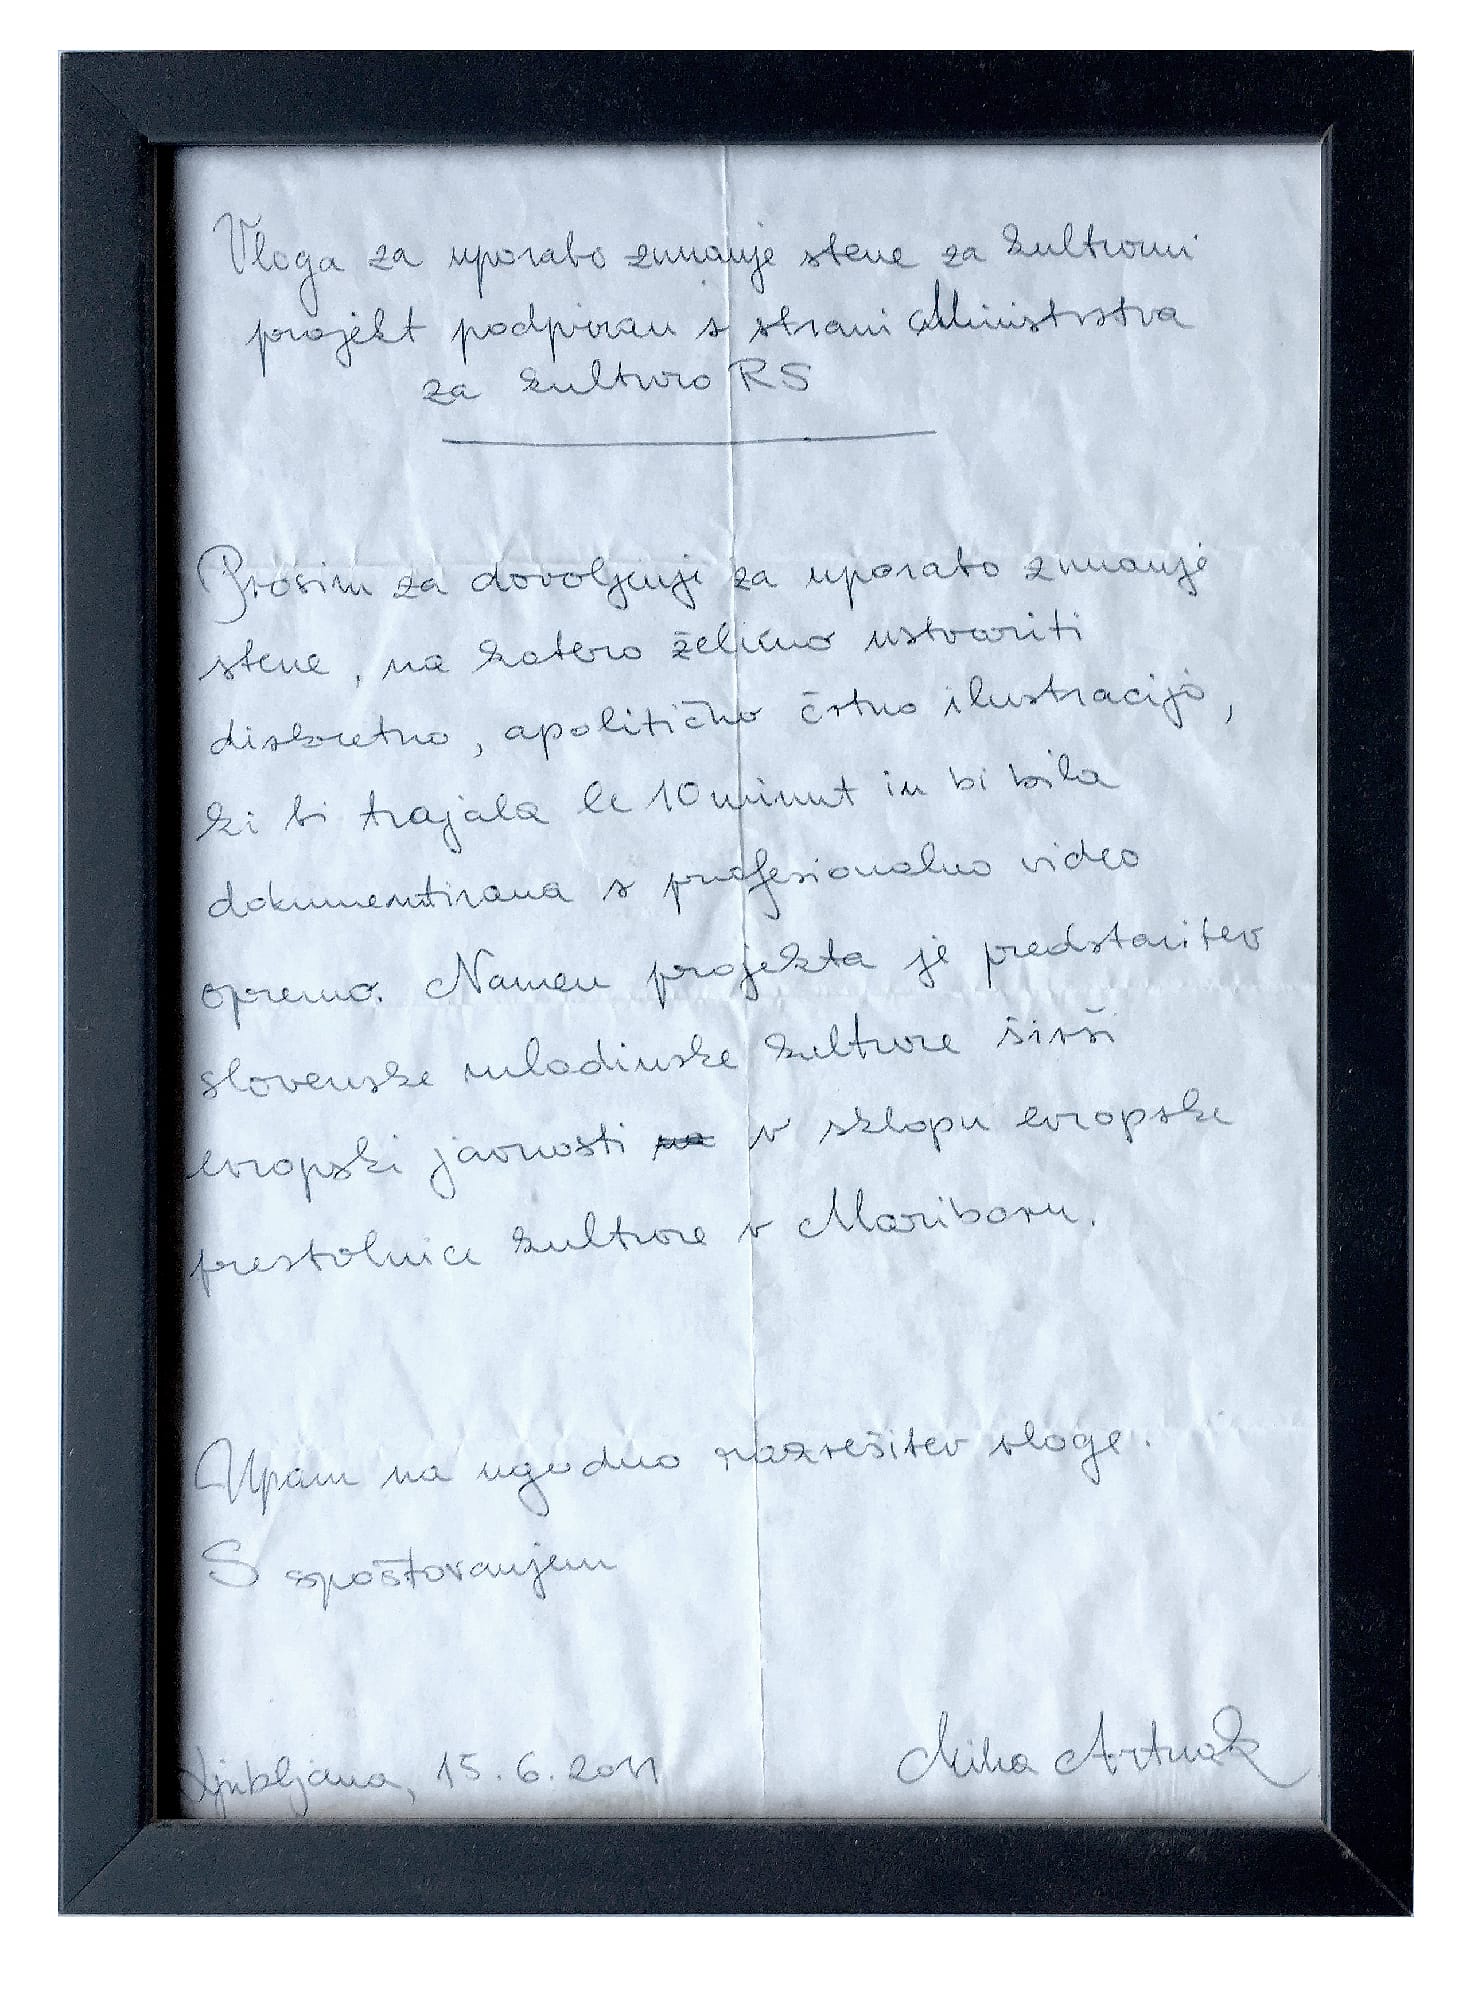 Vloga za uporabo zunanje stene za kulturni
projekt podpiran s strani Ministrstva
za kulturo RS
Prosim za dovoljenje za uporabo zunanje
stene, na katero želimo ustvariti
diskretno, apolitično črtno ilustracijo,
ki bi trajala le 10 minut in bi bila
dokumentirana s profesionalno video
opremo. Namen projekta je predstavitev
slovenske mladinske kulture širši
evropski javnosti v sklopu evropske
prestolnice kulture v Mariboru.
Upam na ugodno razrešitev vloge.
S spoštovanjem
Ljubljana, 15.6.2011
Miha Artnak